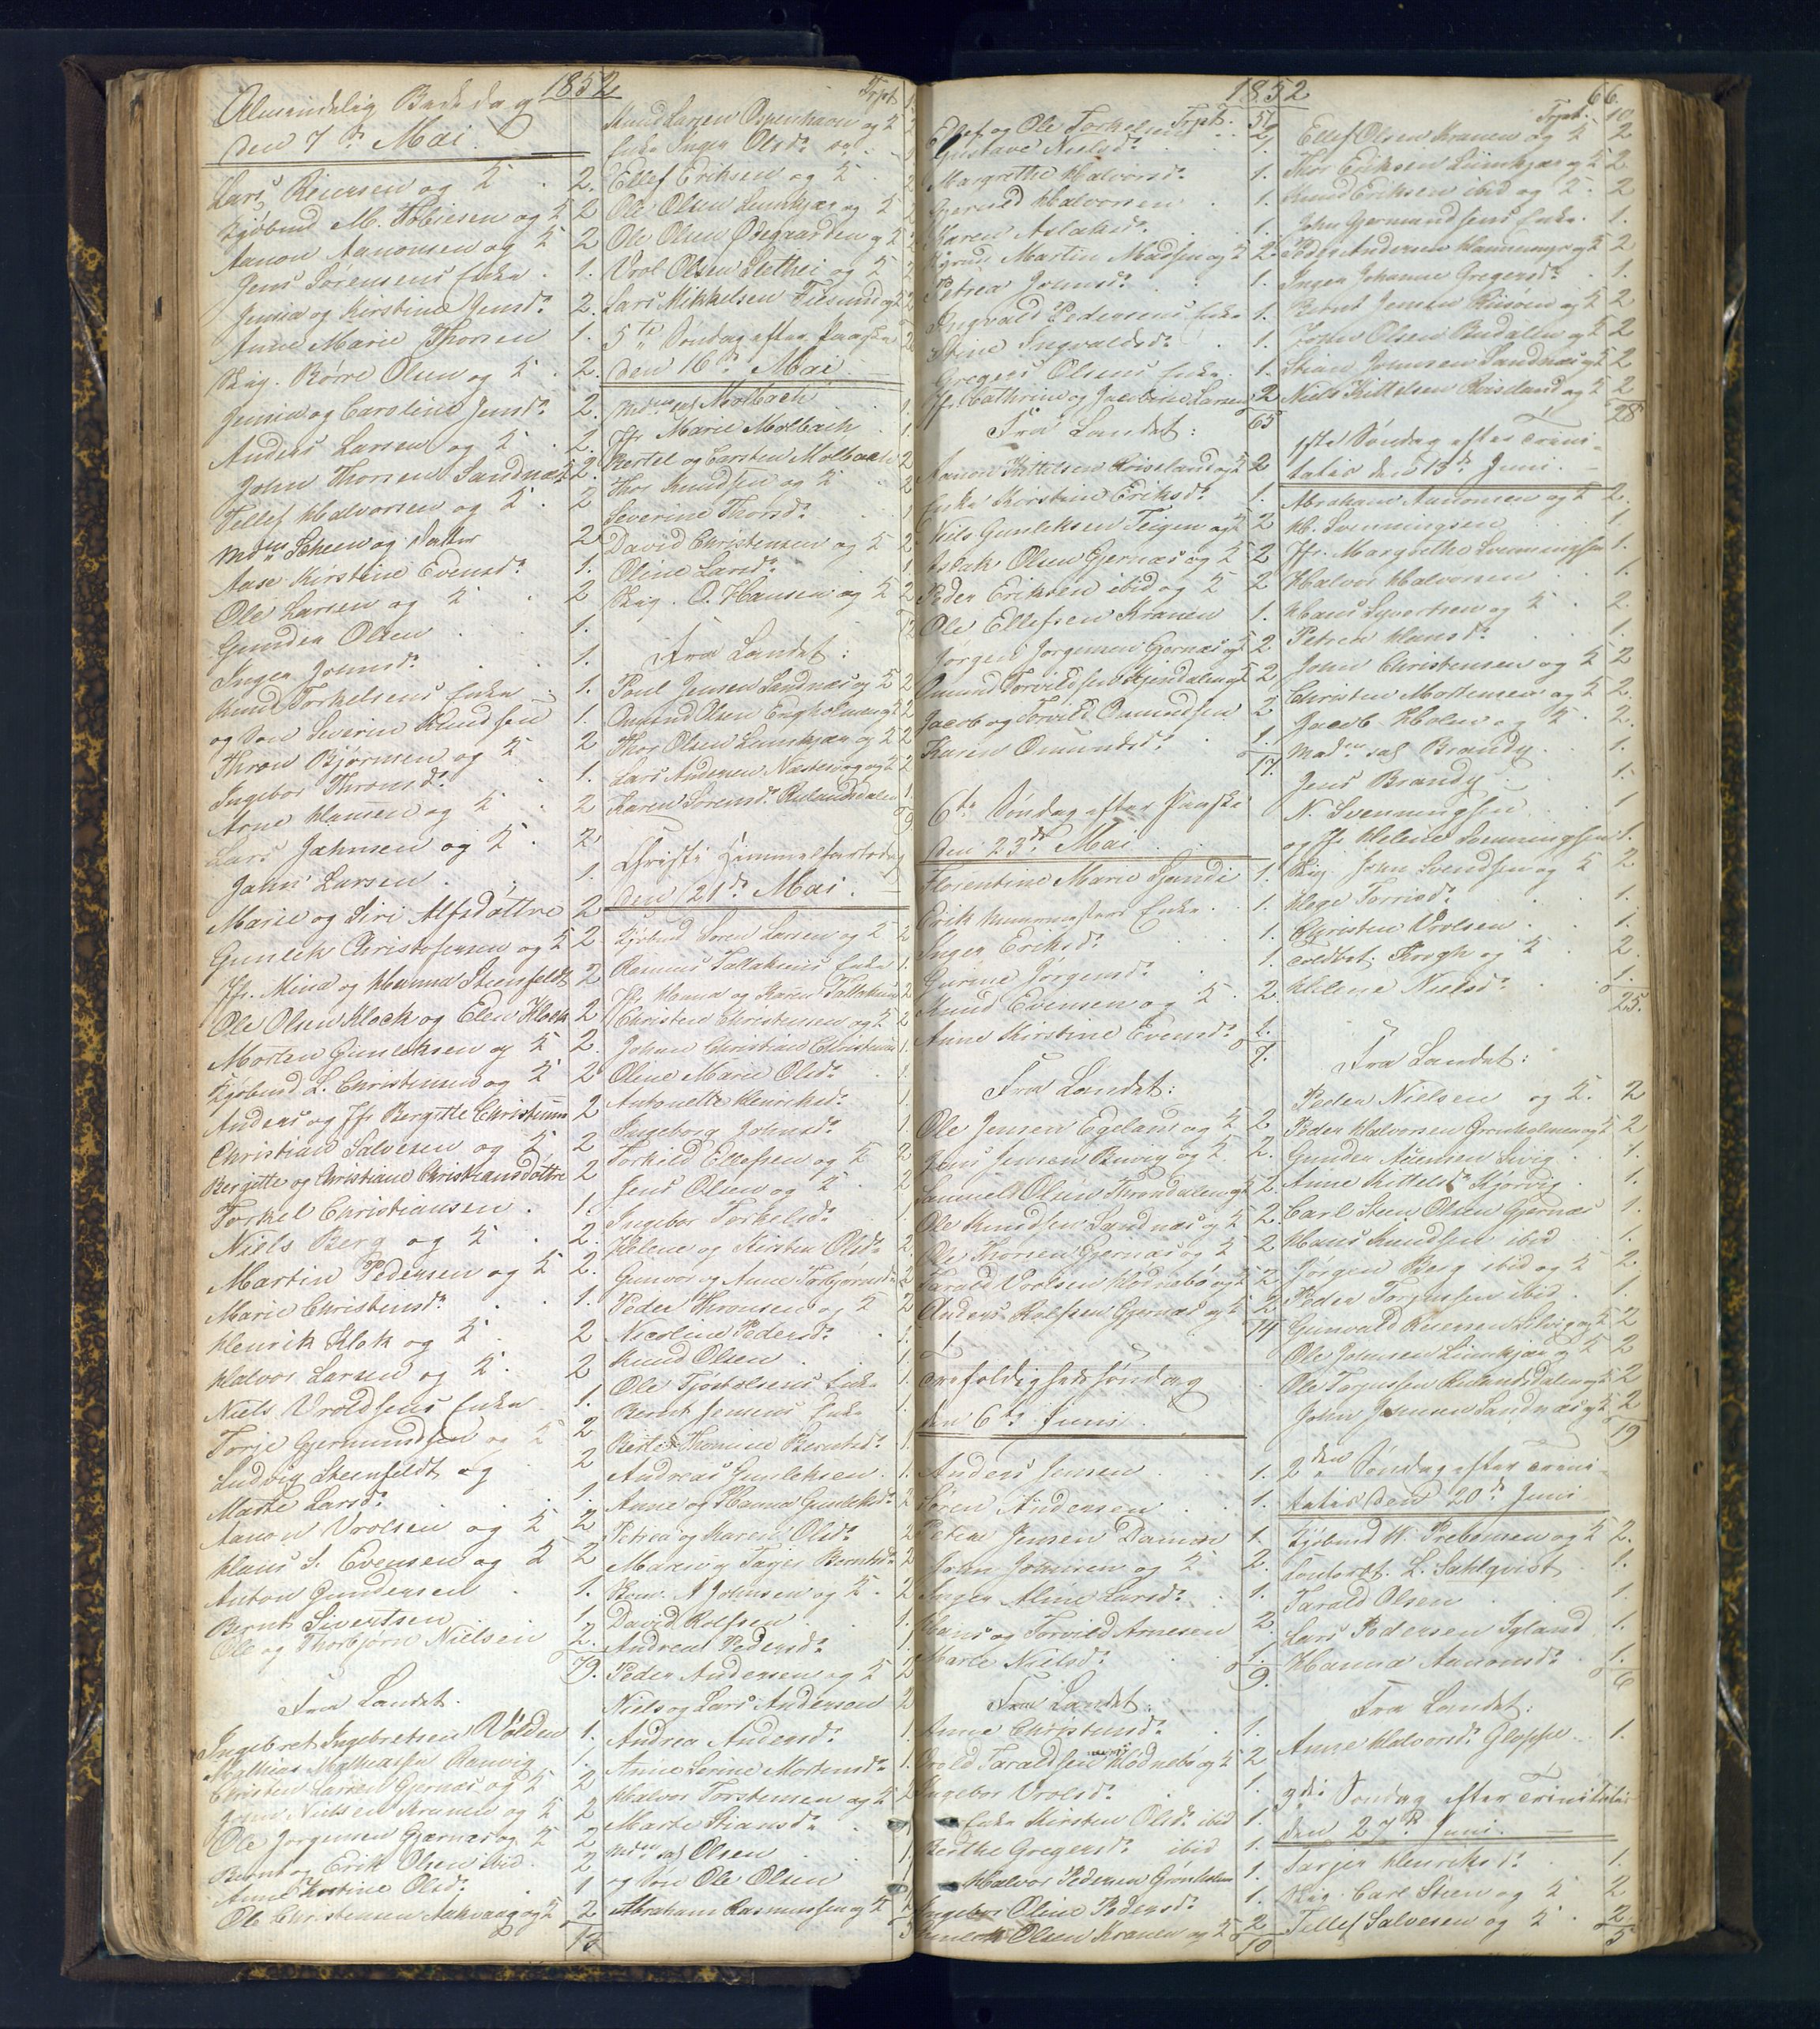 1852
Almindelig Bededag
den 7de Mai
Lars Reiersen og K . 2.
Kjøbmd M. Tobiesen og K 2
Aanon Aanonsen og K 2
Jens Sørensens Enke . 1.
Jensia og Kirstine Jensd. 2.
Anne Marie Thorsen 1.
Skip. Børre Olsen og K . 2.
Jensia og Caroline Jensd. 2.
Anders Larsen og K . 2.
John Thorsen Sandnæs 2.
Tellef Halvorsen og K . 2
Mdm Scheen og Datter 2
Aase Kirstine Evensd. 1.
Ole Larsen og K . 2
Gunder Olsen . . 1.
Inger Johnsd. . . 1.
Knud Torkelsens Enke . 1.
og Søn Severin Knudsen 1.
Thron Bjørnsen og K 2
Ingebor Thronsd. . 1.
Arne Hansen og K . 2
Lars Jahnsen og K . 2
Jahn Larsen . . 1.
Marie og Siri Alfsdøttre 2
Gunlek Christofersen og K 2
Jfr. Mina og Hanna Steenfeldt 2
Ole Olsen Klock og Elen Klock 2
Morten Gunleksen og K 2.
Kjøbmd L. Christensen og K 2
Anders og Jfr Bergitte Christensen 2
Christian Salvesen og K 2
Bergitte og Christiane Christiansdøttre 2
Torkel Christiansen . 1.
Niels Berg og K . 2.
Martin Pedersen og K 2.
Marie Christensd. . . 1.
Henrik Klok og K . 2
Halvor Larsen og K . 2
Niels Vroldsens Enke . 1.
Torje Gjermundsen og K 2
Ludvig Steenfeldt og . 2
Marte Larsd. . . 1.
Aanon Vrolsen og K 2
Hans S. Evensen og K 2
Anton Gundersen . 1.
Bernt Sivertsen . . 1
Ole og Thorbjørn Nielsen 2.
79.
Fra Landet.
Ingebret Ingebretsen Volden 1.
Mathias Mathiassen Ranvig 1.
Christen Larsen Gjernæs og K 2
John Nielsen Kranen og K 2
Ole Jørgensen Gjernæs og K 2
Bernt og Erik Olsen ibid . 2
Anne Kirstine Olsd. . 1
Ole Christensen Aakvaag og K 2
13
Trpt
Knud Larsen Ospenhavn og K 2
Enke Inger Olsd.
Ellef Eriksen og K . 2
Ole Olsen Lunekjær og K 2
Ole Olsen Ødegaarden og K 2
Vrol Olsen Lethei og K 2
Lars Mikkelsen Fiesund og K 2
5te Søndag efter Paaske
den 16de Mai
Mdm sal Molbach . 1.
Jfr Marie Molbach . 1.
Bertel og Carsten Molbach 2
Thor Knudsen og K . 2
Severine Thorsd. . . 1
David Christensen og K 2
Oline Larsd. . . 1
Skip. O. Hansen og K 2
12
Fra Landet:
Poul Jensen Sandnæs og K 2
Omund Olsen Engholmen og K 2
Thor Olsen Lunekjær og K 2
Lars Andersen Næstevog og K 2
Karen Sørensd. Rulandsdalen 1.
9.
Christi Himmelfartsdag
den 21de Mai.
Kjøbmd Søren Larsen og K 2
Rasmus Tallaksens Enke 1.
Jfr Hanna og Karen Tallaksen 2
Christen Christensen og K 2
Johan Christian Christensen 1.
Olene Marie Olsd. . 1.
Antonette Henriksd. . 1.
Ingeborg Johnsd. . 1
Torkild Ellefsen og K 2
Jens Olsen og K . 2
Ingebor Torkelsd. . 1
Helene og Kirsten Olsd. 2.
Gunvor og Anne Torbjørnsd. 2
Peder Thronsen og K 2
Nicoline Pedersd. . 1.
Knud Olsen . . 1.
Ole Tjøstolsens Enke 1.
Bernt Jensens Enke 1.
Kirle Thomine Berntsd. 1.
Andreas Gunleksen . 1.
Anne og Hanna Gunleksd. 2
Petrea og Karen Olsd. 2
Maren og Tarjer Berntsd. 2
Rom. A Johnsen og K . 2
David Rolfsen . . 1.
Andrea Pedersd. . 1
Peder Andersen og K 2
Niels og Lars Andersen 2
Andrea Andersd. . 1.
Anne Serine Mortensd. 1
Halvor Torstensen og K 2
Marte Stiansd. . 1
Mdm sal Olsen . . 1
og Søn Ole Olsen 1
Abraham Rasmussen og K 2
1852
66.
Trpt. 51
Ellef og Ole Torkelsen . . 2.
Gustave Nielsd. . . 1.
Margrethe Halvorsd. . 1.
Gjermud Halvorsen . 1.
Karen Aslaksd. . . 1.
Kjrmd Martin Madsen og K 2.
Petrea Johnsd. . . 1.
Ingvald Pedersens Enke 1.
Stine Ingvaldsd. . 1.
Gregers Olsens Enke . 1.
Jfr. Cathrine og Jacobine Larsen 2
65
Fra Landet:
Aanon Kittelsen Roiseland og K 2
Enke Kirsten Eriksd. 1.
Niels Gunleksen Teigen og K 2
Aslak Olsen Gjernæs og K 2
Peder Eriksen ibid og K 2
Ole Ellefsen Kranen 1.
Jørgen Jørgensen Gjernæs og K 2
Omund Torvildsen Kjendalen og K 2
Jacob og Torvild Omundsen 2
Karen Omundsd. . 1.
17.
6te Søndag efter Paaske
den 23de Mai
Florentine Marie Gjundi 1.
Erik Murmesters Enke . 1.
Inger Eriksd. . . 1.
Gurine Jørgensd. . . 1.
Knud Evensen og K . 2.
Anne Kirstine Evensd. 1.
7.
Fra Landet:
Ole Jensen Egeland og K 2
Jens Jensen Buvig og K 2.
Samuel Olsen Throndalen og K 2.
Ole Knudsen Sandnæs og K 2.
Ole Thorsen Gjernæs og K 2
Tarald Vrolsen Hødnebø og K 2
Anders Rolfsen Gjernæs og K 2.
14
Trefoldighedssøndag
den 6te Juni
Anders Jensen . . 1.
Søren Andersen . . 1.
Petrine Jensen Damoe 1.
John Johnsen og K . 2.
Inger Aline Larsd. . 1.
Hans og Torvild Arnesen 2.
Marte Nielsd. . 1.
9.
Fra Landet:
Anne Christensd. . 1.
Vrold Taraldsen Hødnebø og K 2
Ingebor Vrolsd. . 1.
Enke Kirsten Olsd. ibid 1.
Berthe Gregersd. ibid 1.
Halvor Pedersen Grønholmen 1.
Ingebor Oline Pedersd. 1.
Gunlek Olsen Kranen og K 2
10
Trpt. 10
Ellef Olsen Kranen og K 2
Thor Eriksen Lunekjær og K 2
Knud Eriksen ibid og K . 2
John Gjermundsens Enke . 1.
Peder Andersen Hammemyr og K 2
Inger Johanne Gregersd. . 1.
Bernt Jensen Risøen og K 2
John Olsen Budalen og K 2
Stian Johnsen Sandnæs og K 2
Niels Kittelsen Roiseland og K 2
28
1ste Søndag efter Trini-
tatis den 13de Juni.
Abraham Aanonsen og K 2.
H. Svenningsen . 1.
Jfr. Margrethe Svenningsen 1.
Halvor Halvorsen . . 1.
Hans Syvertsen og K . 2.
Petrea Hansd. . . 1.
John Christensen og K 2
Christen Mortensen og K 2.
Jacob Holm og K . 2.
Madm sal Brandy . 1.
Jens Brandy . . 1.
N. Svenningsen . 1
og Jfr Helene Svenningsen 1.
Skip. John Svendsen og K 2
Hege Torrisd. . . 1.
Christen Vrolsen . . 1.
Toldbet. Krogh og K . 2.
Helene Nielsd. . . 1.
25.
Fra Landet:
Peder Nielsen og K . 2
Peder Halvorsen Grønholmen og K 2
Gunder Aanensen Sivig . 1.
Anne Kittelsd. Kjørvig . 1.
Carl Steen Olsen Gjernæs 1.
Hans Knudsen ibid . 1.
Jørgen Berg ibid og K 2
Peder Torjussen ibid . 1.
Gunvald Knemsen Silvig og K 2
Ole Johnsen Lunekjær og K 2
Ole Tarjussen Rulandsdalen og K 2
John Jensen Sandnæs og K 2
19
2den Søndag efter Trini-
tatis den 20de Juni
Kjøbmd W. Prebensen og K 2.
Contordt. L. Sahlqvist . 1.
Tarald Olsen . . 1.
Lars Pedersen Igland 1.
Hanna Aanonsd. . 1.
6
Fra Landet:
Anne Halvorsd. Gloppe . 1.
3die Søndag efter Trinitatis
den 27de Juni.
Tarjer Henriksd. . 1.
Skip. Carl Steen og K 2
Tellef Salvesen og K . 2
5